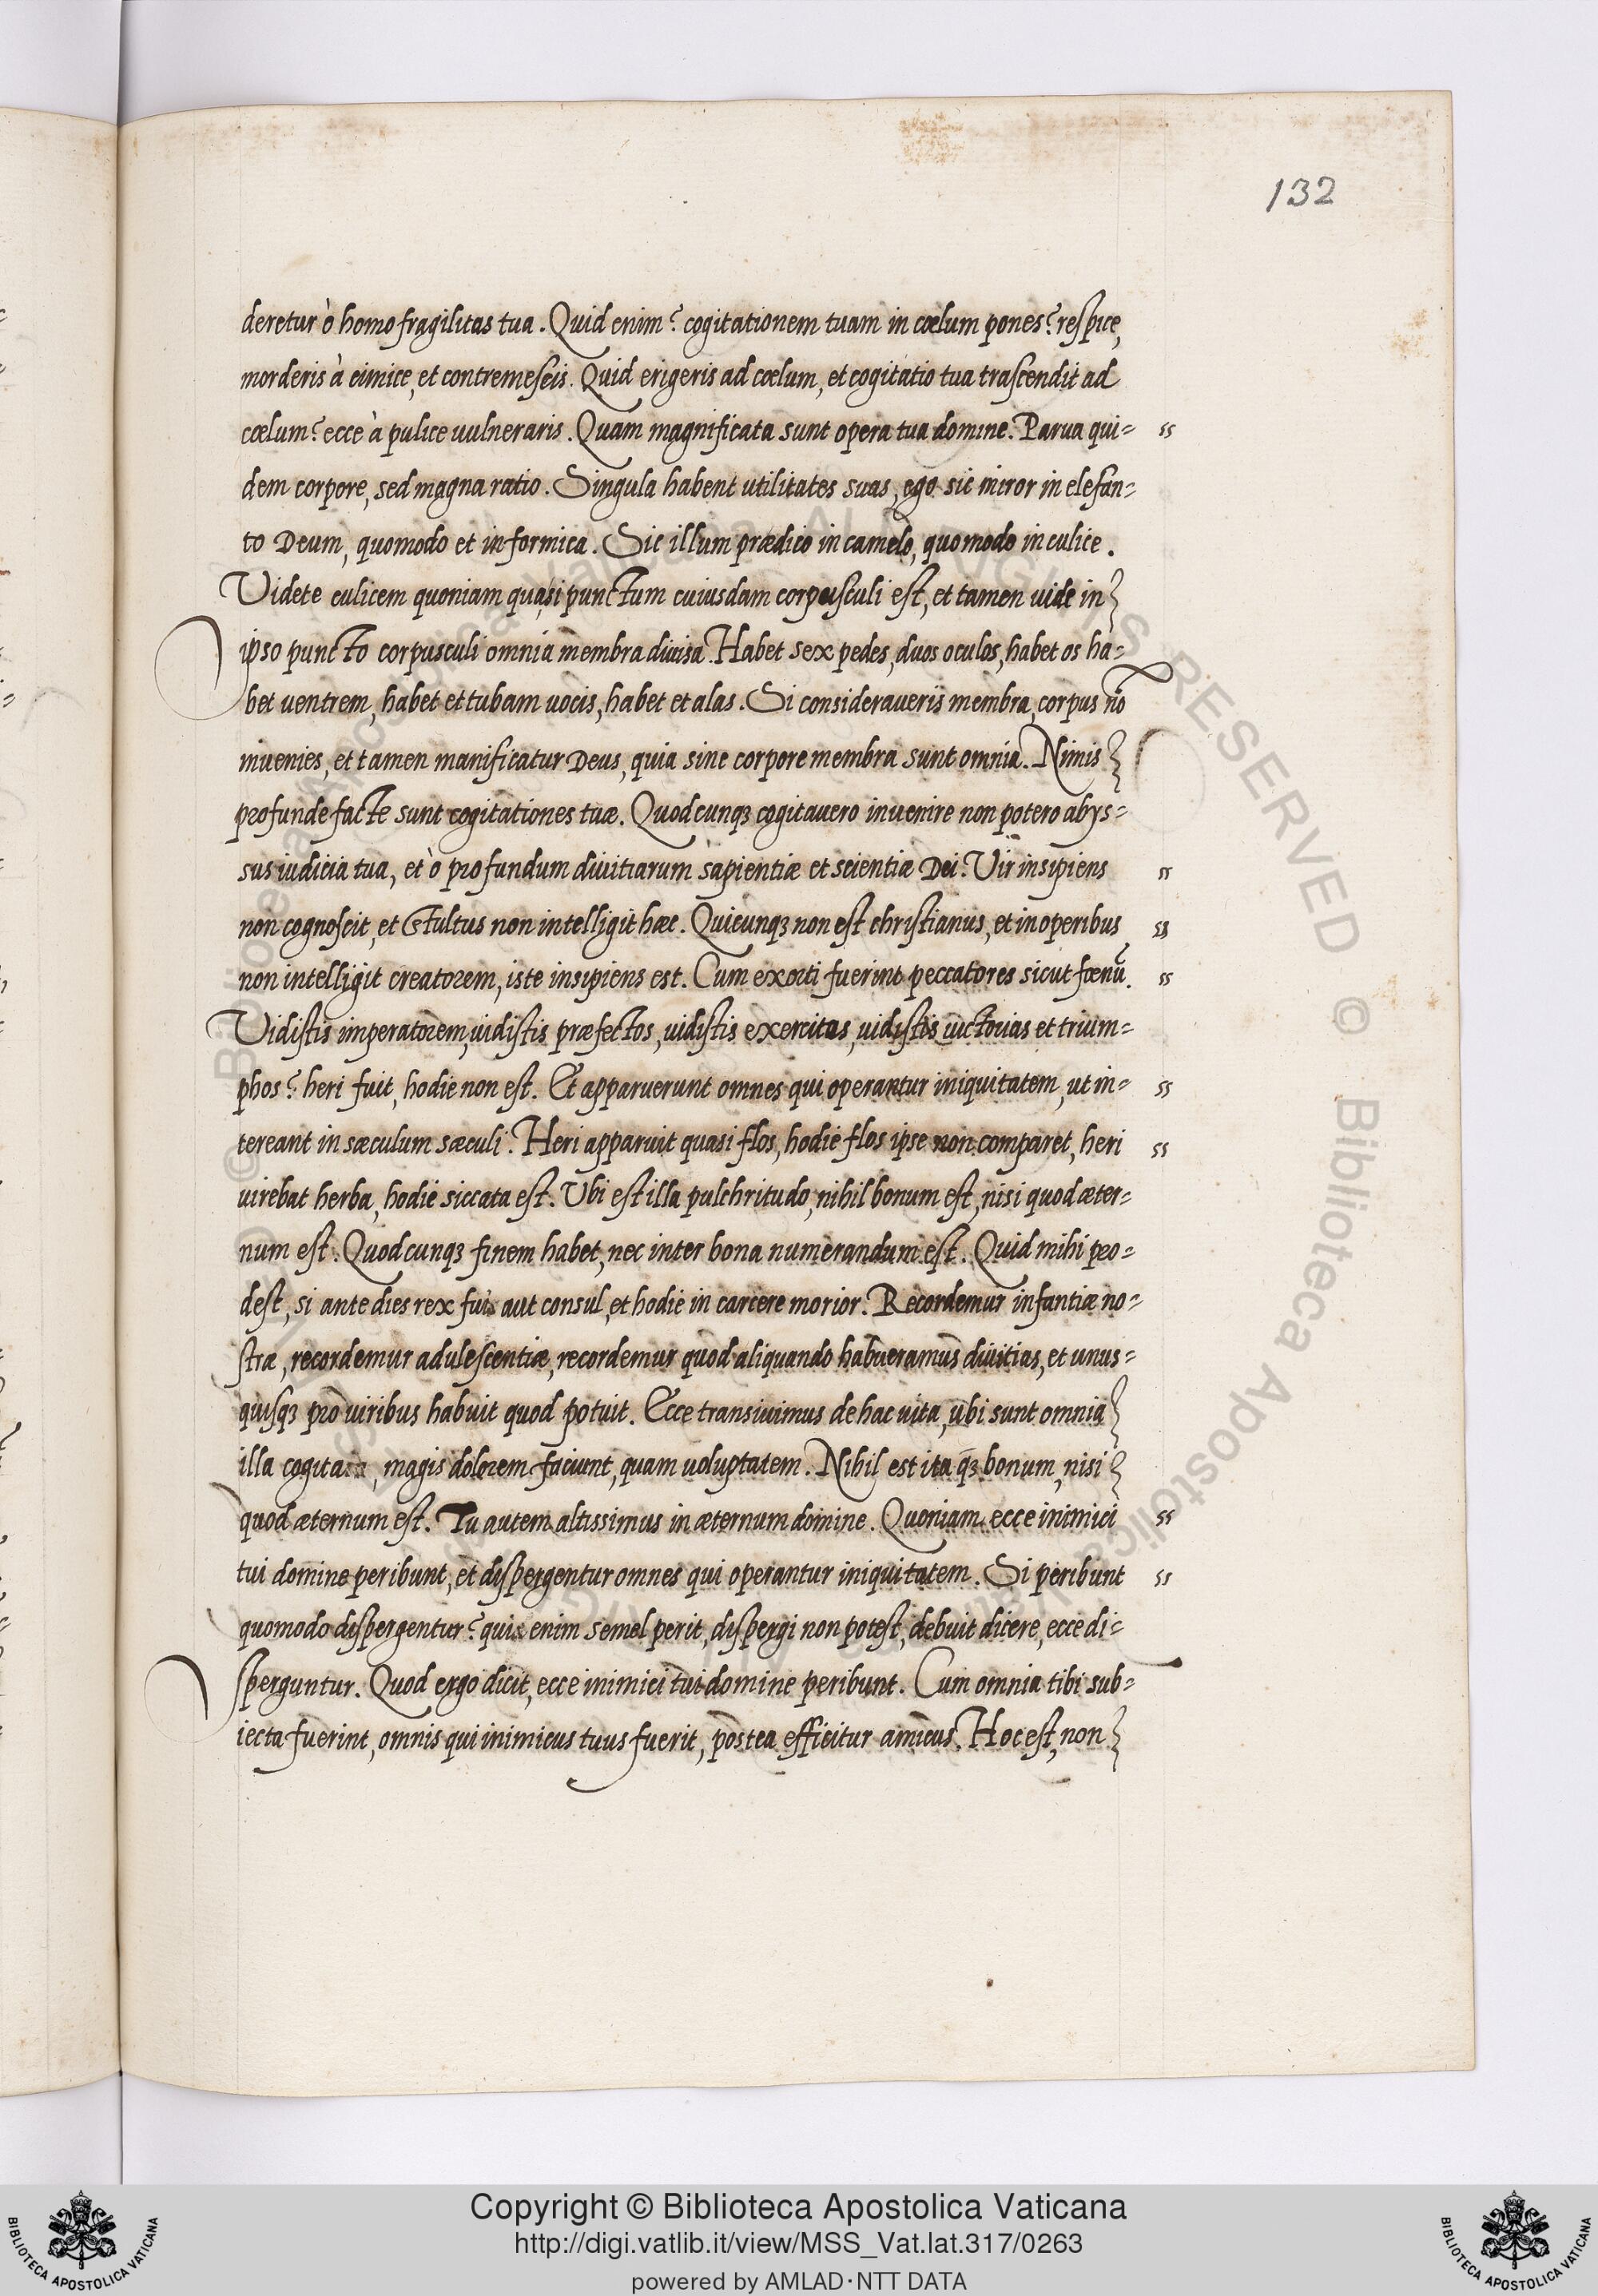 132
deretur ò homo fragilitas tua. Quid enim? cogitationem tuam in cœlum pones? respice,
morderis à cimice, et contremescis. Quid erigeris ad cœlum, et cogitatio tua trascendit ad
cœlum? ecce à pulice vulneraris. Quam magnificata sunt opera tua domine. Parua qui= ss
dem corpore, sed magna ratio. Singula habent utilitates suas, ego sic miror in elefan=
to Deum, quomodo et in formica. Sic illum prædico in camelo, quomodo in culice.
Videte culicem quoniam quasi punctum cuiusdam corpusculi est, et tamen uide in
ipso puncto corpusculi omnia membra diuisa. Habet sex pedes, duos oculos, habet os ha=
bet uentrem, habet et tubam uocis, habet et alas. Si consideraueris membra, corpus nō
inuenies, et tamen manificatur Deus, quia sine corpore membra sunt omnia. Nimis
profunde facte sunt cogitationes tuæ. Quodcunqꝫ cogitauero inuenire non potero abys=
sus iudicia tua, et ò profundum diuitiarum sapientiæ et scientiæ Dei. Vir insipiens ss
non cognoscit, et stultus non intelligit hæc. Quicunqꝫ non est christianus, et in operibus ss
non intelligit creatorem, iste insipiens est. Cum exorti fuerint peccatores sicut fœnū. ss
Vidistis imperatorem, uidistis præfectos, uidistis exercitus, uidistis uictorias et trium=
phos? heri fuit, hodie non est. Et apparuerunt omnes qui operantur iniquitatem, ut in= ss
tereant in sæculum sæculi. Heri apparuit quasi flos, hodie flos ipse non comparet, heri ss
uirebat herba, hodie siccata est. Vbi est illa pulchritudo, nihil bonum est, nisi quod æter=
num est. Quodcunqꝫ finem habet, nec inter bona numerandum est. Quid mihi pro=
dest, si ante dies rex fui aut consul, et hodie in carcere morior. Recordemur infantiæ no=
stræ, recordemur adulescentiæ, recordemur quod aliquando habueramus diuitias, et unus=
quisqꝫ pro uiribus habuit quod potuit. Ecce transiuimus de hac uita, ubi sunt omnia
illa cogitata, magis dolorem faciunt, quam uoluptatem. Nihil est ita qꝫ bonum, nisi
quod æternum est. Tu autem altissimus in æternum domine. Quoniam ecce inimici ss
tui domine peribunt, et dispergentur omnes qui operantur iniquitatem. Si peribunt ss
quomodo dispergentur? quis enim semel perit, dispergi non potest, debuit dicere, ecce di=
sperguntur. Quod ergo dicit, ecce inimici tui domine peribunt. Cum omnia tibi sub=
iecta fuerint, omnis qui inimicus tuus fuerit, postea efficitur amicus. Hoc est, non
Copyright © Biblioteca Apostolica Vaticana
http://digi.vatlib.it/view/MSS_Vat.lat.317/0263
powered by AMLAD·NTT DATA
BIBLIOTECA APOSTOLICA VATICANA
BIBLIOTECA APOSTOLICA VATICANA